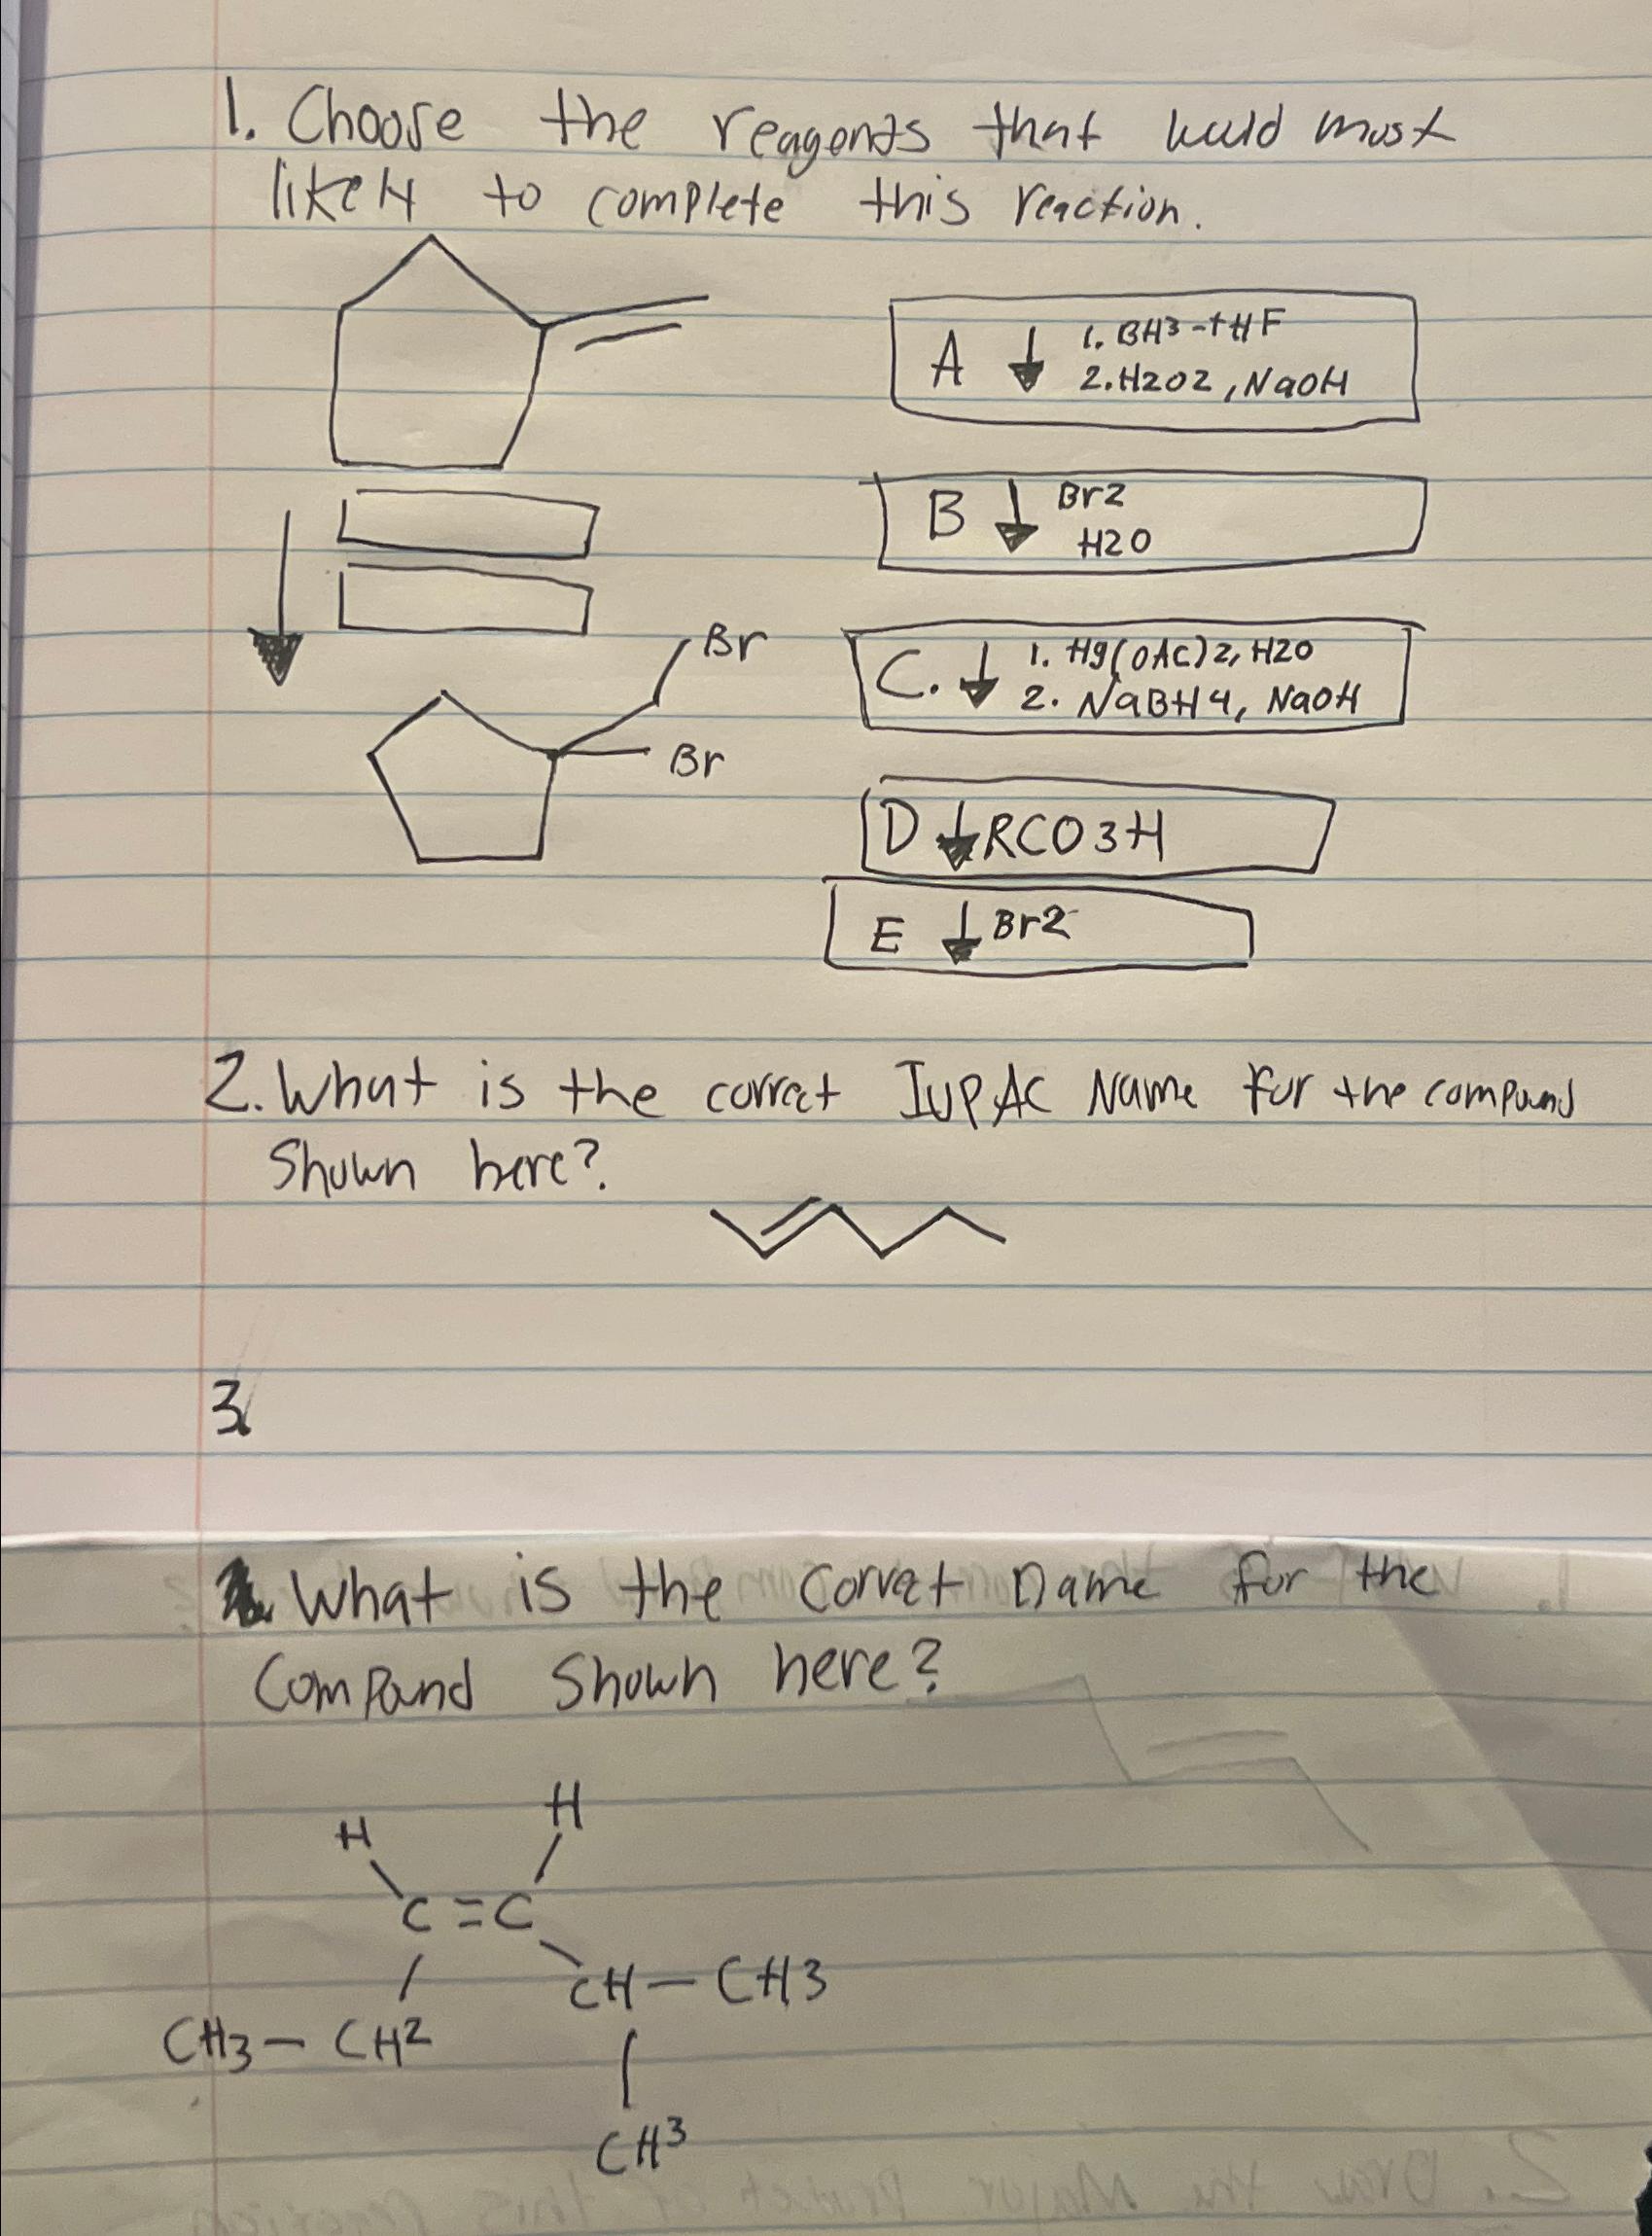 1. Choose the reagents that would most
likely to complete this reaction.
A 1. BH3-tHF
2. H2O2, NaOH
B Br2
H2O
Br
Br
C. 1. Hg(OAc)2, H2O
2. NaBH4, NaOH
D RCO3H
E Br2
2. What is the correct IUPAC Name for the compound
Shown here?
3.
What is the correct name for the
Compound Shown here?
H H
C=C
CH-CH3
CH3-CH2
CH3